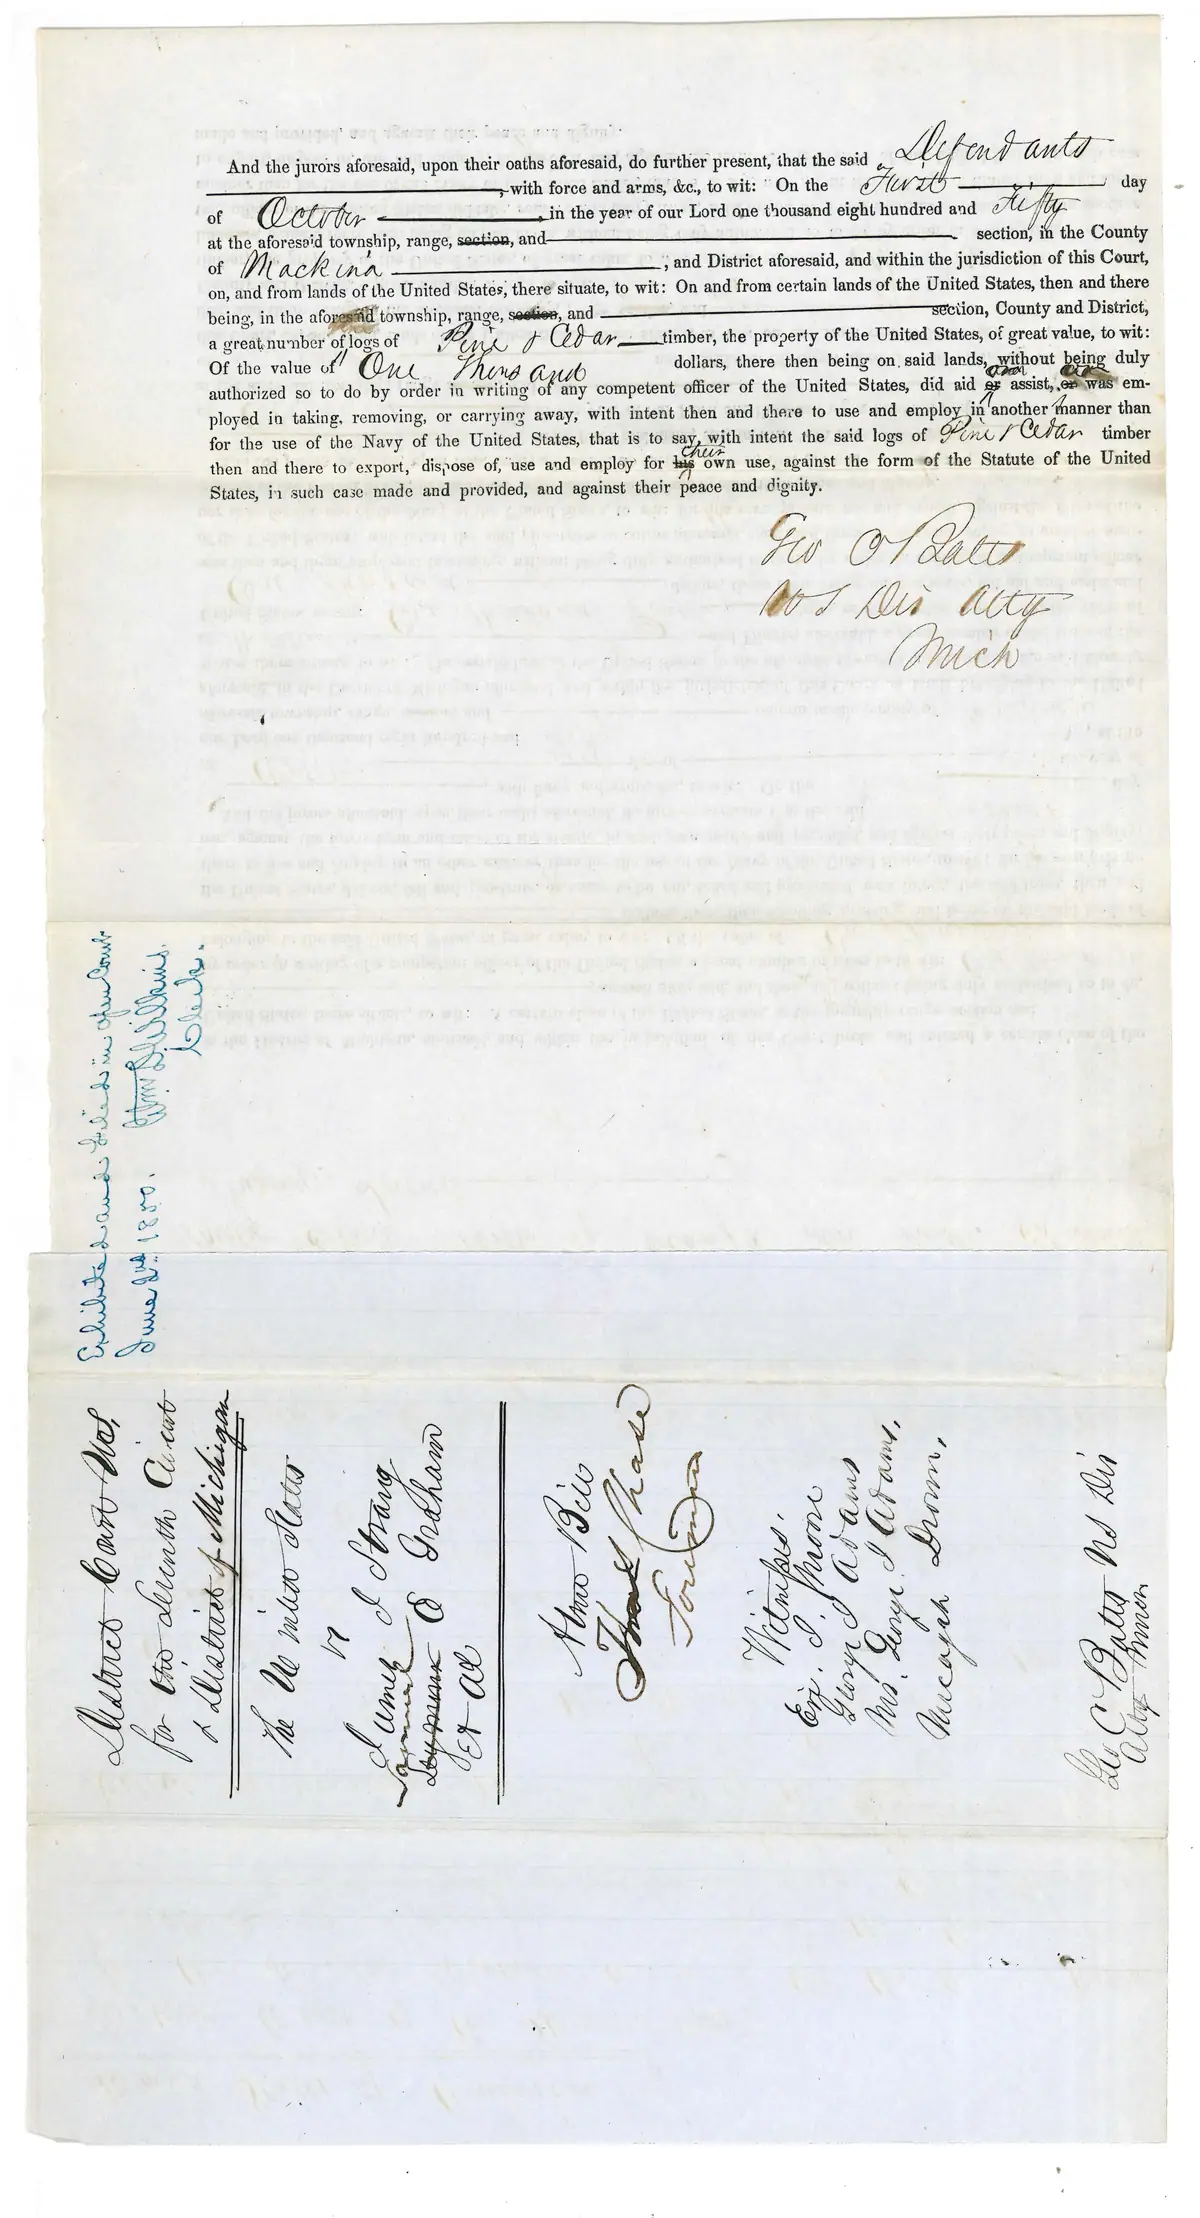 And the jurors aforesaid, upon their oaths aforesaid, do further present, that the said Defendants
, with force and arms, &c., to wit: On the First day
of October , in the year of our Lord one thousand eight hundred and Fifty
at the aforesaid township, range, section, and section, in the County
of Mackina ; and District aforesaid, and within the jurisdiction of this Court,
on, and from lands of the United States, there situate, to wit: On and from certain lands of the United States, then and there
being, in the aforesaid township, range, section, and section, County and District,
a great number of logs of Pine & Cedar timber, the property of the United States, of great value, to wit:
Of the value of One Thousand dollars, there then being on said lands, without being duly
authorized so to do by order in writing of any competent officer of the United States, did aid or and assist, or are was em-
ployed in taking, removing, or carrying away, with intent then and there to use and employ in another manner than
for the use of the Navy of the United States, that is to say, with intent the said logs of Pine & Cedar timber
then and there to export, dispose of, use and employ for his their own use, against the form of the Statute of the United
States, in such case made and provided, and against their peace and dignity.
Geo C Bates
U S Dis Atty
Mich
Exhibited and Filed in open Court
June 2nd 1850. Wm Wilkins.
Clerk.
District Court US,
for the Seventh Circuit
& District of Michigan
The United States
vs
James J Strang
Samuel Graham
Lyman E
Et Al
A True Bill
Thos Chase
Foreman
Witnesses.
Eri. J. Moore
George J Adams
Mrs. George. J Adams,
Micajah Drown,
Geo C Bates US Dis
Atty